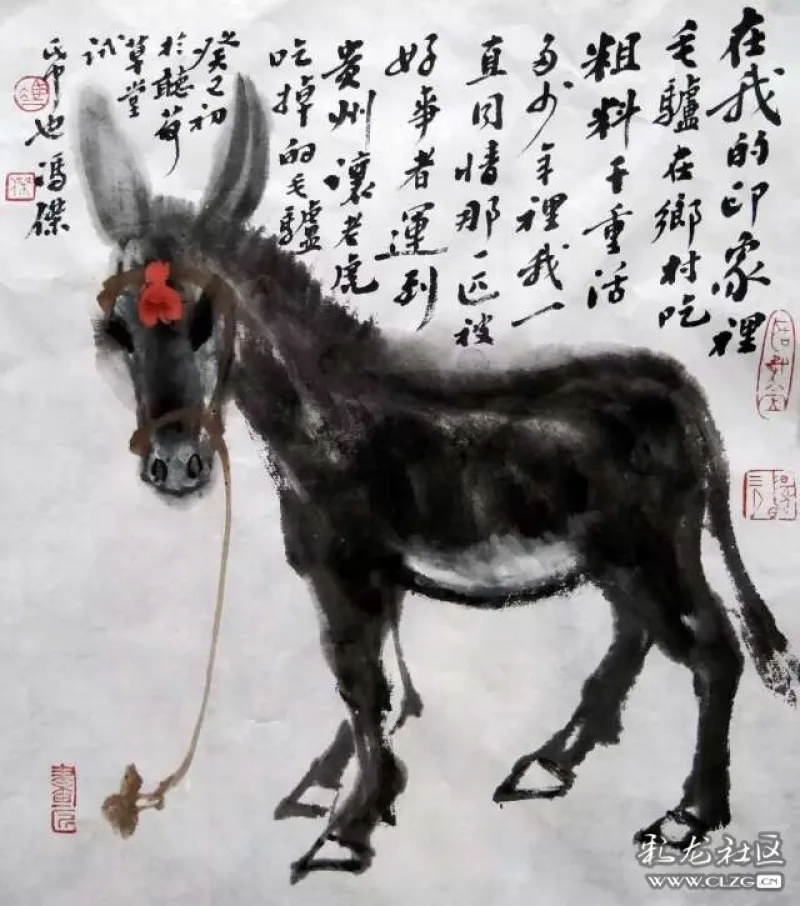 在我的印象裡
毛驢在鄉村吃
粗料干重活
多少年裡我一
直同情那一匹被
好事者運到
貴州讓老虎
吃掉的毛驢
癸巳初
於聽荷
草堂
試
也馮傑
彩龙社区
WWW.CLZG.CN